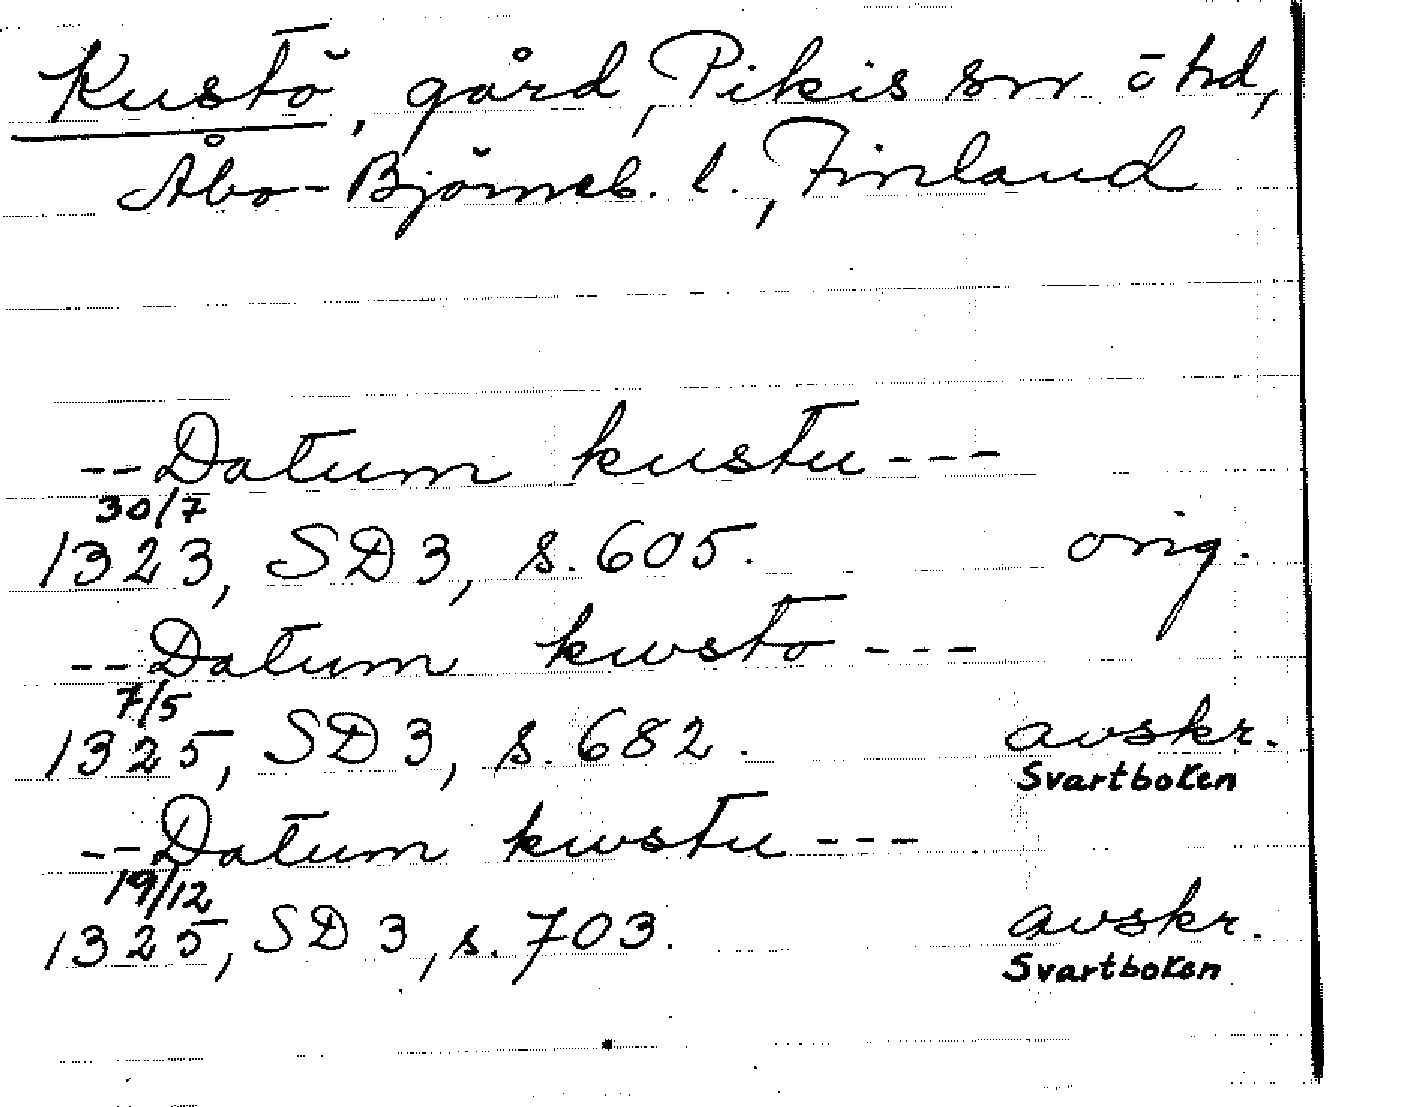 Kustö, gård, Pikis sn o hd,
Åbo-Björneb. l., Finland
--Datum kustu---
30/7
1323, SD 3, s. 605. orig.
--Datum kwsto---
7/5
1325, SD 3, s. 682. avskr.
Svartboken
--Datum kwstu---
19/12
1325, SD 3, s. 703. avskr.
Svartboken